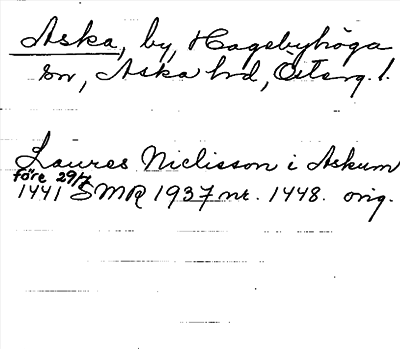 Aska, by, Hagebyhöga
sn, Aska hd, Östерg. l.
Laures Niclisson i Askum
före 29/7
1441 SMR 1937 nr. 1448. orig.